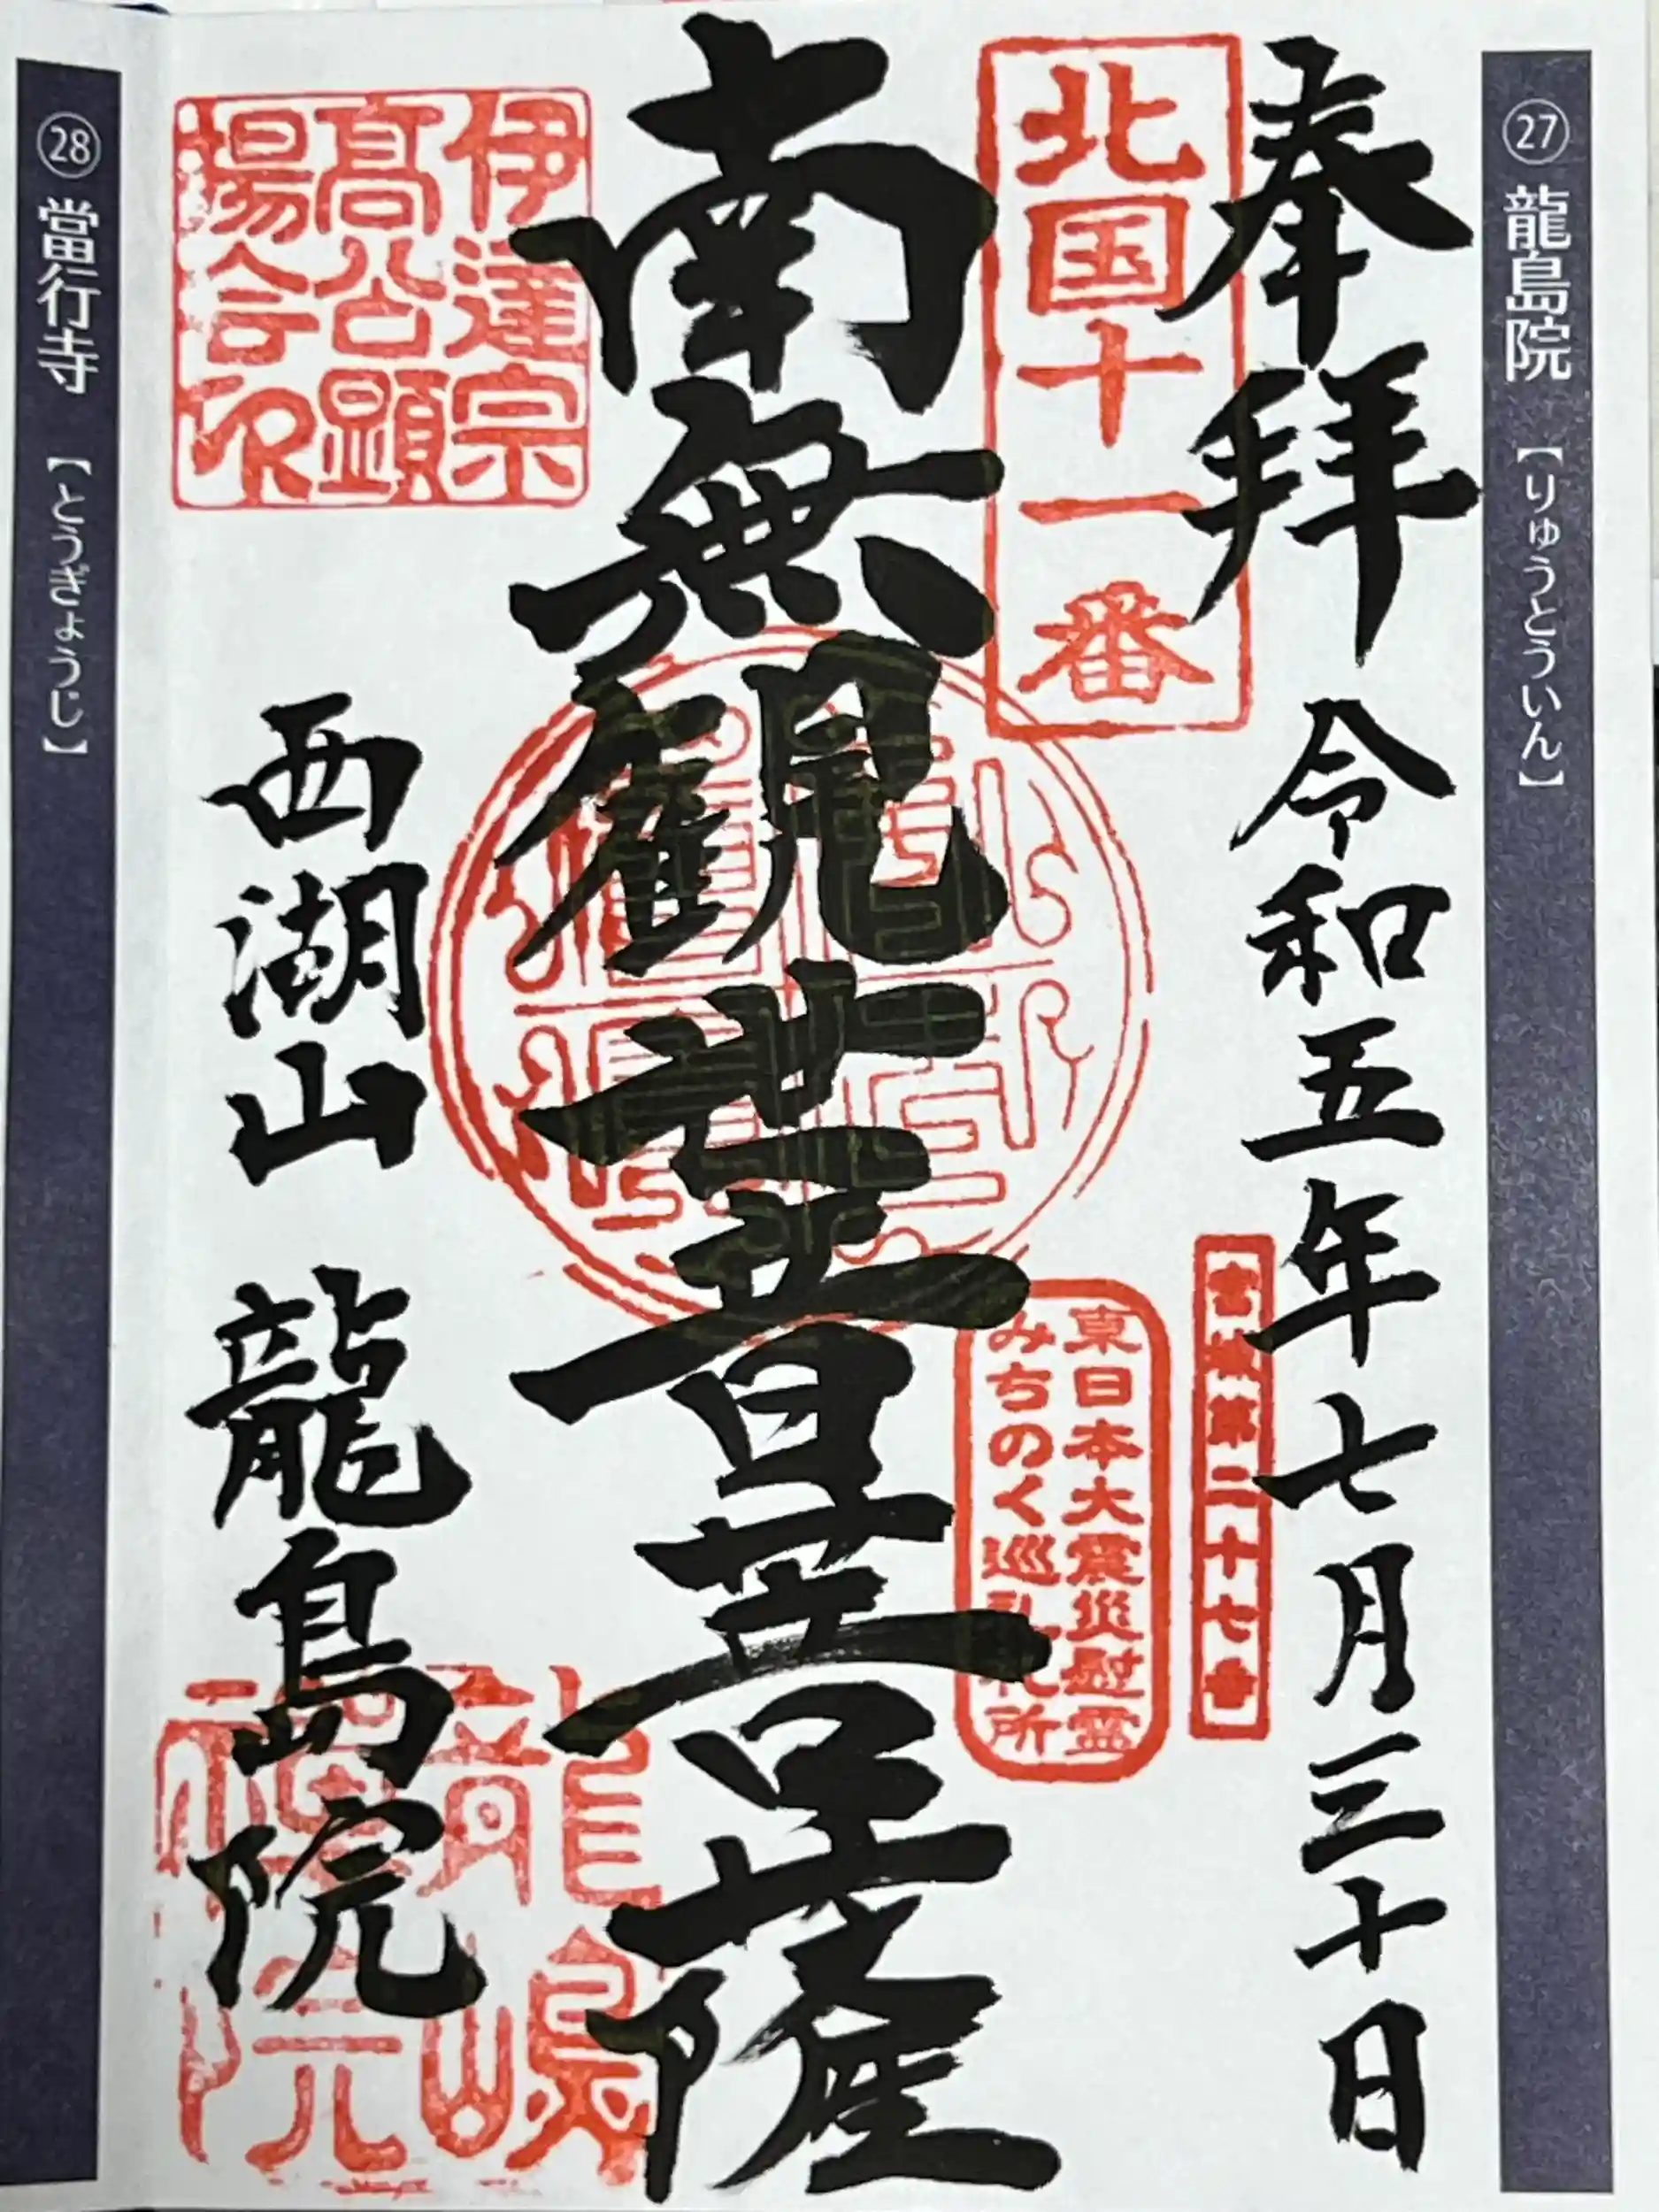 ㉗ 龍島院 【りゅうとういん】
奉拝 令和五年七月三十日
北国十一番
宮城第二十七番
東日本大震災慰霊
みちのく巡礼札所
南無観世音菩薩
伊達宗
高公顕
揚会印
西湖山 龍島院
龍嶋
禅院
㉘ 當行寺 【とうぎょうじ】